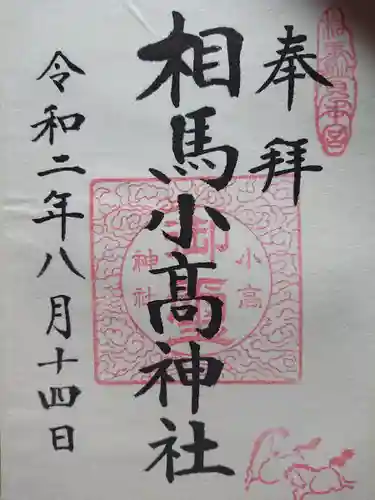 奉拝
相馬小髙神社
令和二年八月十四日
小高
神社
御霊